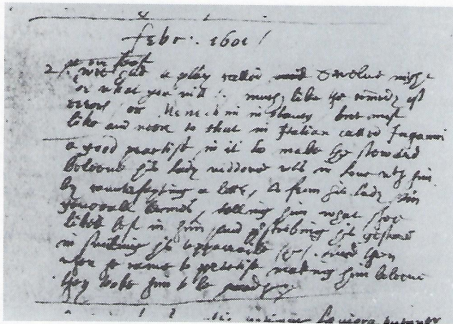 febr. 1601
2. at our feast
wee had a play called mid Twelue night
or what you will. much like the commedy of
errores or Menechmi in Plautus but most
like and neere to that in Italian called Inganni
a good practise in it to make the steward
beleeue his Lady widdowe was in Loue with him
by counterfayting a lettr, as from his Lady in
generall termes, telling him what shee
liked best in him and prescribing his gesture
in smiling his apparraile &c. and then
when he came to practise making him beleeue
they tooke him to be mad